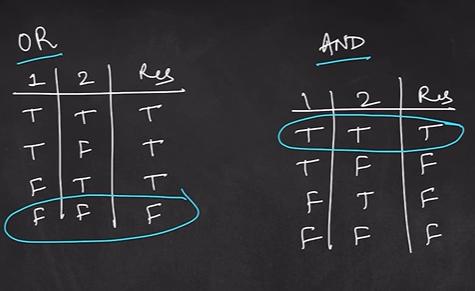 OR
1 2 Res
T T T
T F T
F T T
F F F
AND
1 2 Res
T T T
T F F
F T F
F F F